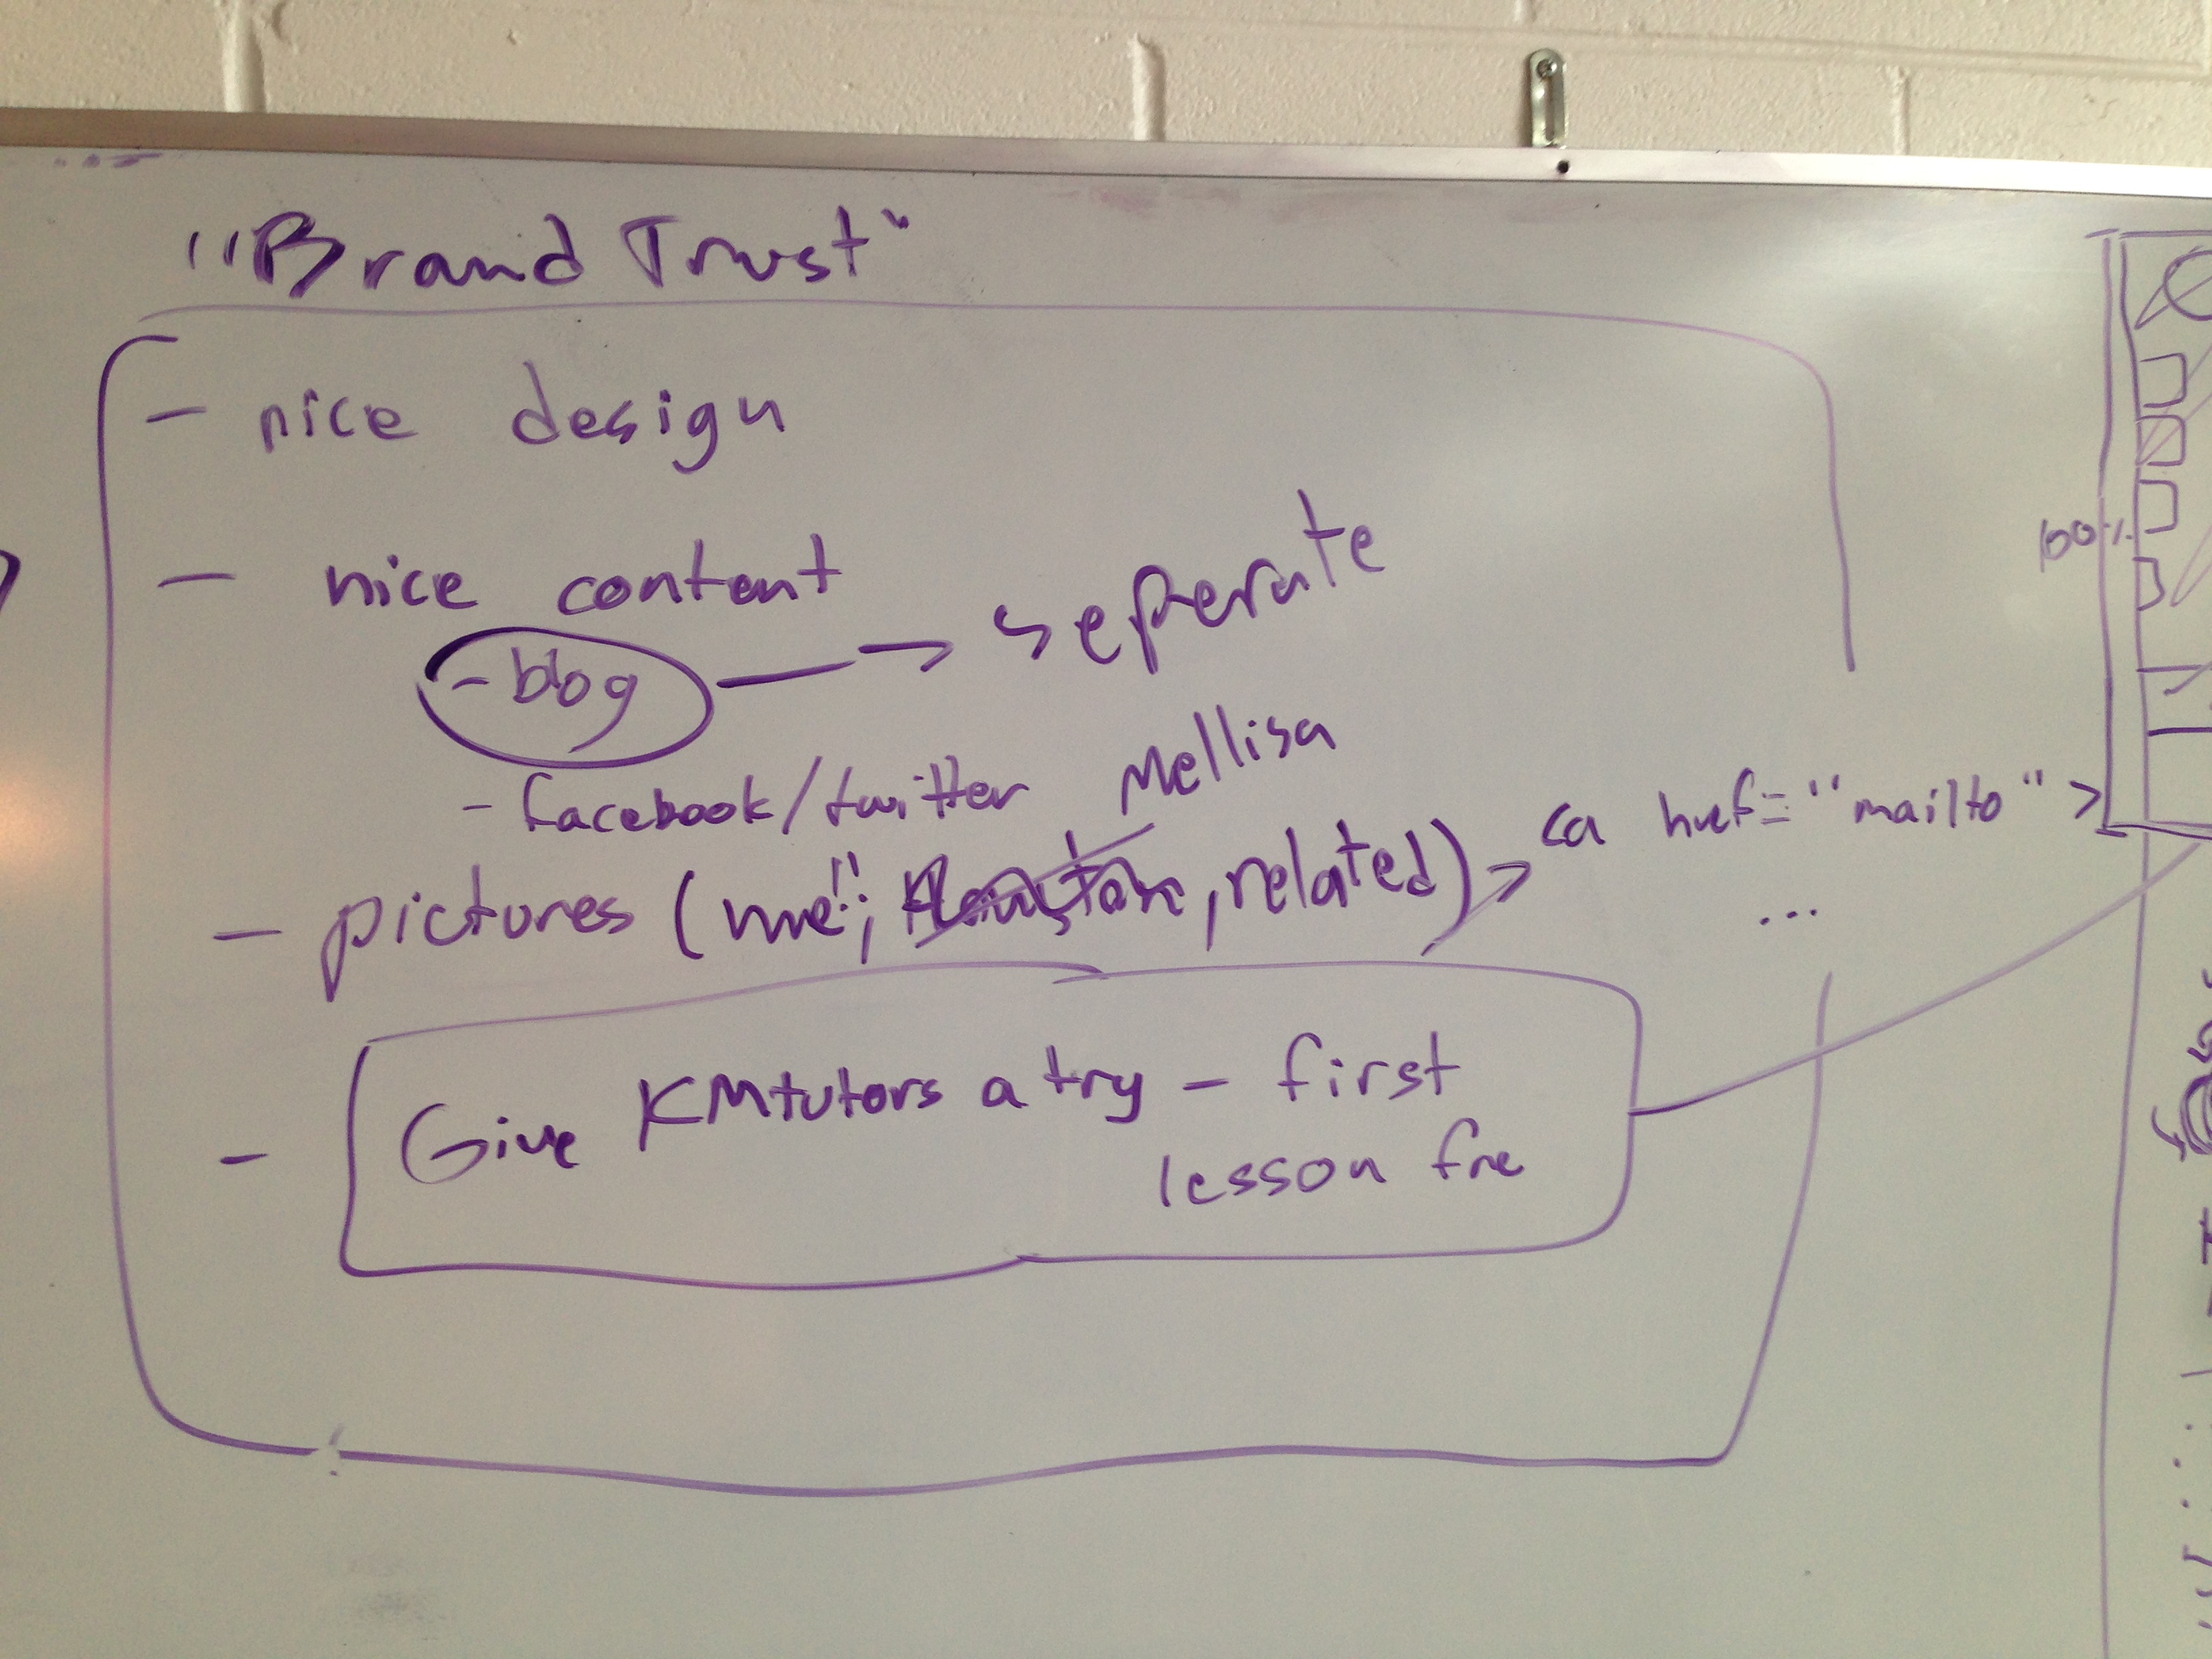 "Brand Trust"
- nice design
- nice content
- blog → seperate
- facebook/twitter Mellisa
- pictures (me!!, , related) > <a href="mailto">
...
- Give KMtutors a try - first
lesson free
100%